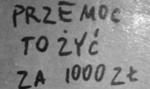 PRZEMOC
TO ŻYĆ
ZA 1000 ZŁ